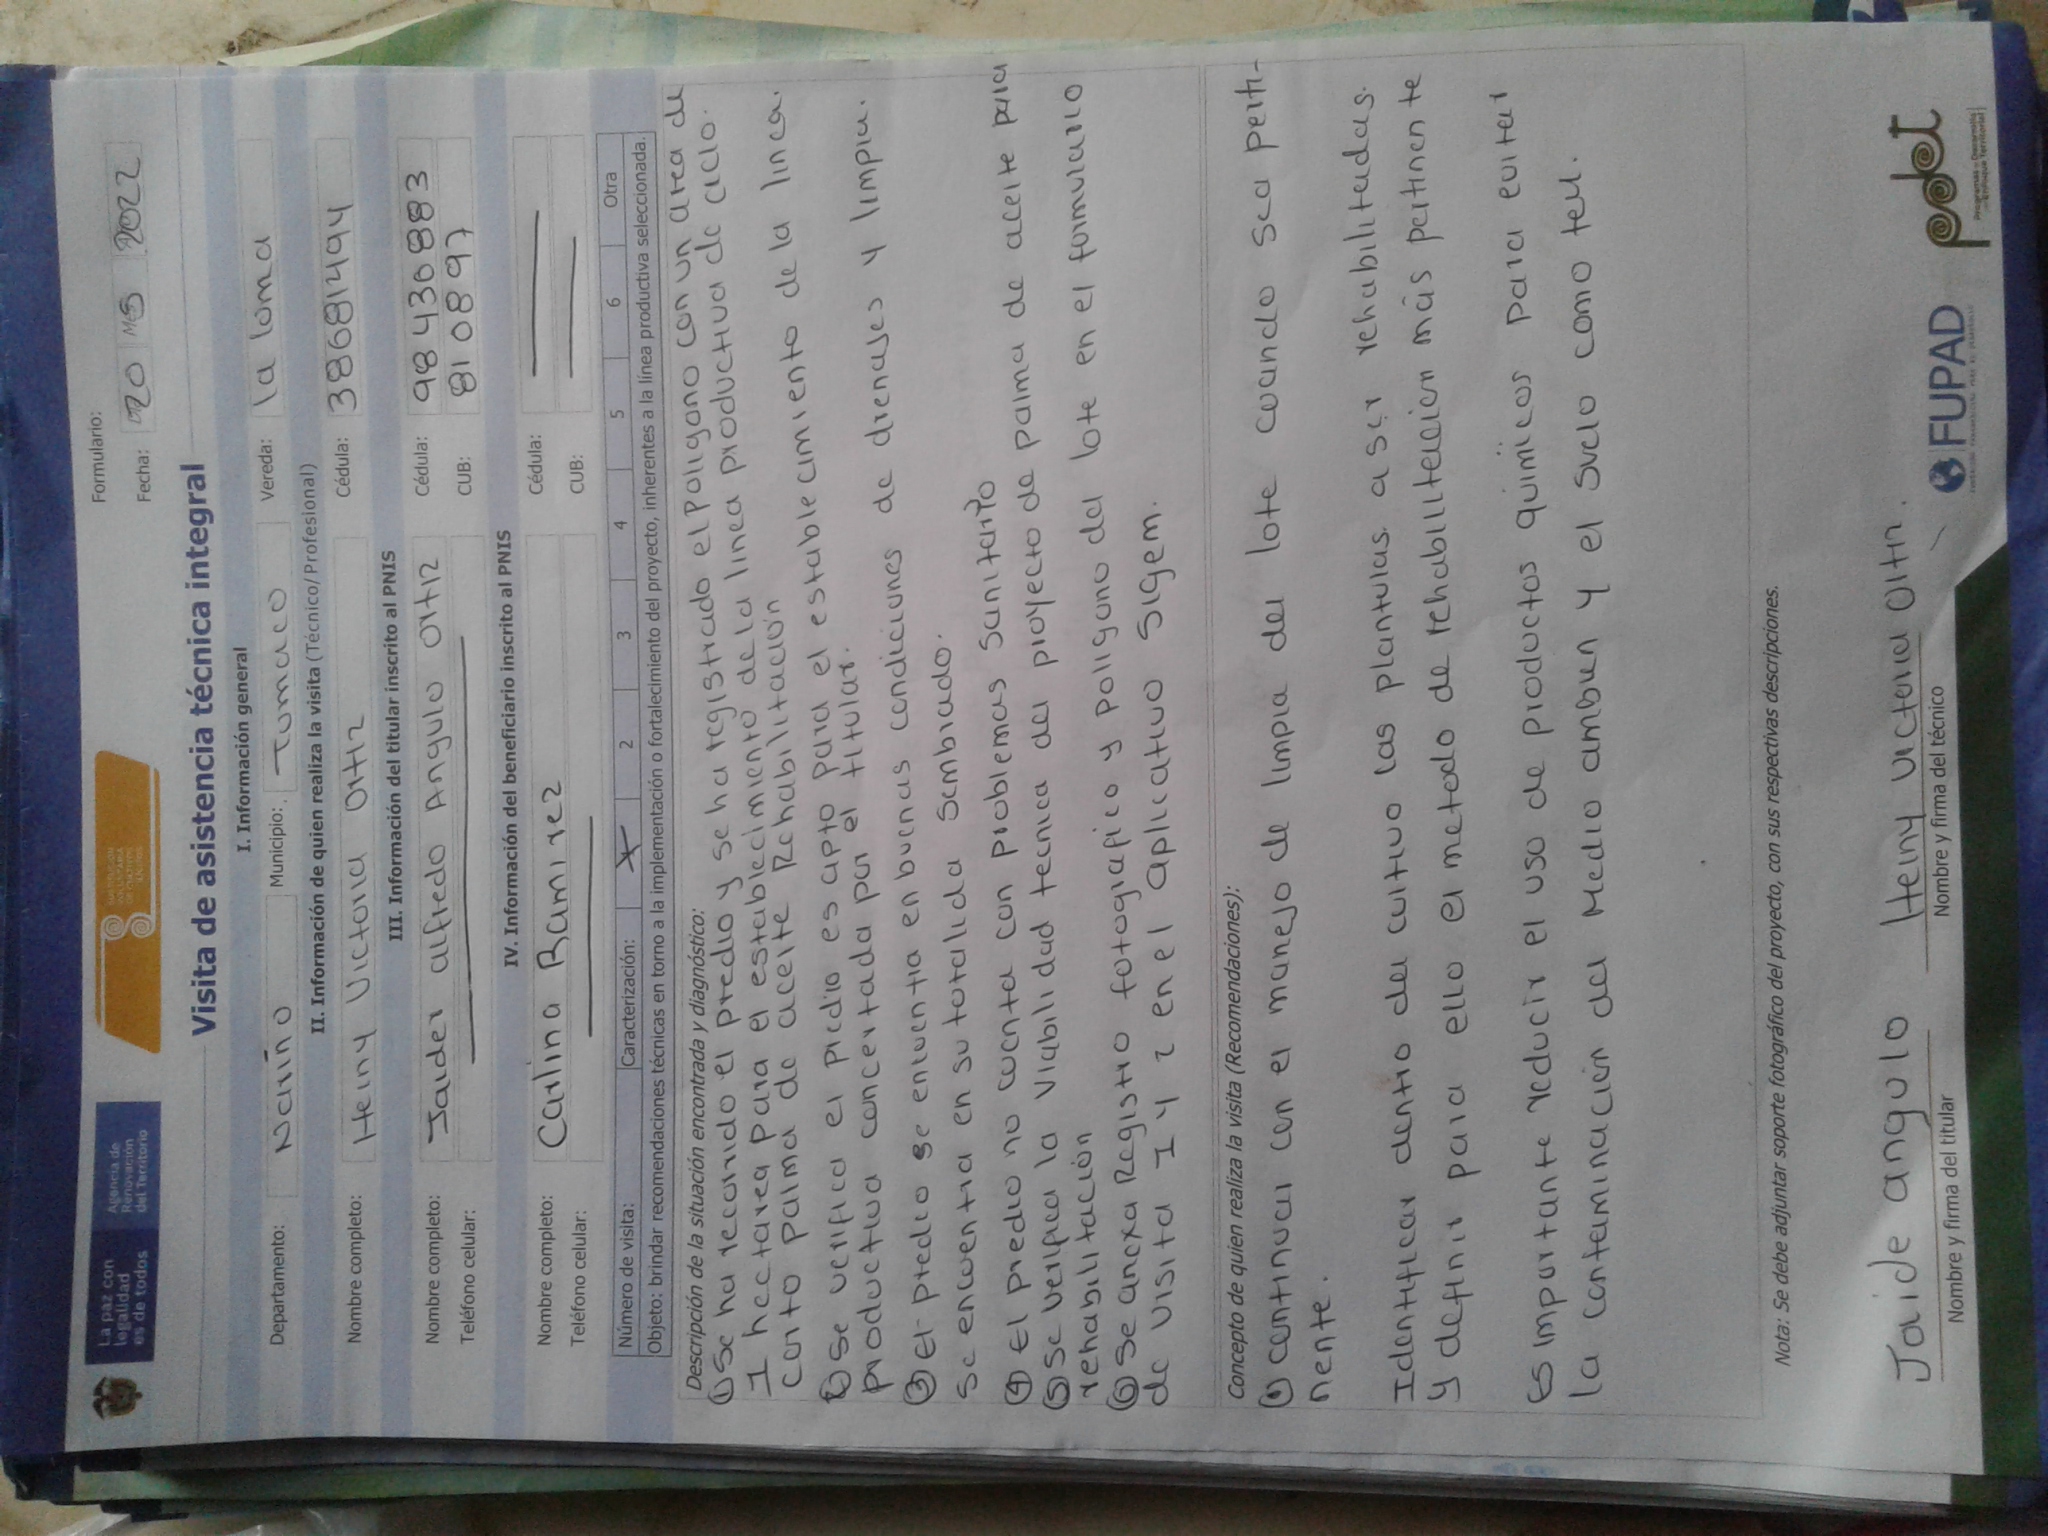 La paz con
legalidad
es de todos
Agencia de
Renovación
del Territorio
SUSTITUCIÓN
VOLUNTARIA
DE CULTIVOS
ILÍCITOS
Formulario:
Fecha: 20 Mes 2022
Visita de asistencia técnica integral
I. Información general
Departamento: Nariño Municipio: Tumaco Vereda: la loma
II. Información de quien realiza la visita (Técnico/Profesional)
Nombre completo: Heiny Victoria Ortiz Cédula: 38681494
III. Información del titular inscrito al PNIS
Nombre completo: Jaider alfredo Angulo Ortiz Cédula: 98430883
Teléfono celular: CUB: 810897
IV. Información del beneficiario inscrito al PNIS
Nombre completo: Carlina Ramirez Cédula:
Teléfono celular: CUB:
Número de visita: Caracterización: X 2 3 4 5 6 Otra
Objeto: brindar recomendaciones técnicas en torno a la implementación o fortalecimiento del proyecto, inherentes a la línea productiva seleccionada.
Descripción de la situación encontrada y diagnóstico:
① Se ha recorrido el predio y se ha registrado el Poligano con un area de
1 hectarea para el establecimiento de la linea productiva de ciclo
corto palma de aceite Rehabilitación
② se verifica el predio es apto para el establecimiento de la linea
productiva concertada por el titular.
③ El predio se encuentra en buenas condiciones de drenajes y limpia.
Se encuentra en su totalida sembrado.
④ El predio no cuenta con problemas sanitario
⑤ se verifica la viabilidad tecnica del proyecto de palma de aceite para
rehabilitación
⑥ Se anexa Registro fotografico y poligano del lote en el formulario
de visita 1 y 2 en el aplicativo Sigem.
Concepto de quien realiza la visita (Recomendaciones):
① continuar con el manejo de limpia del lote cuando sea perti-
nente.
Identificar dentro del cultivo las plantulas a ser rehabilitadas.
y definir para ello el metodo de rehabilitación más pertinente
Es importante reducir el uso de productos quimicos para evitar
la contaminación del Medio ambien y el suelo como tal.
Nota: Se debe adjuntar soporte fotográfico del proyecto, con sus respectivas descripciones.
Jaide angulo Heiny Victoria Ortiz.
Nombre y firma del titular Nombre y firma del técnico
FUPAD
pdet
Programas de Desarrollo
con Enfoque Territorial